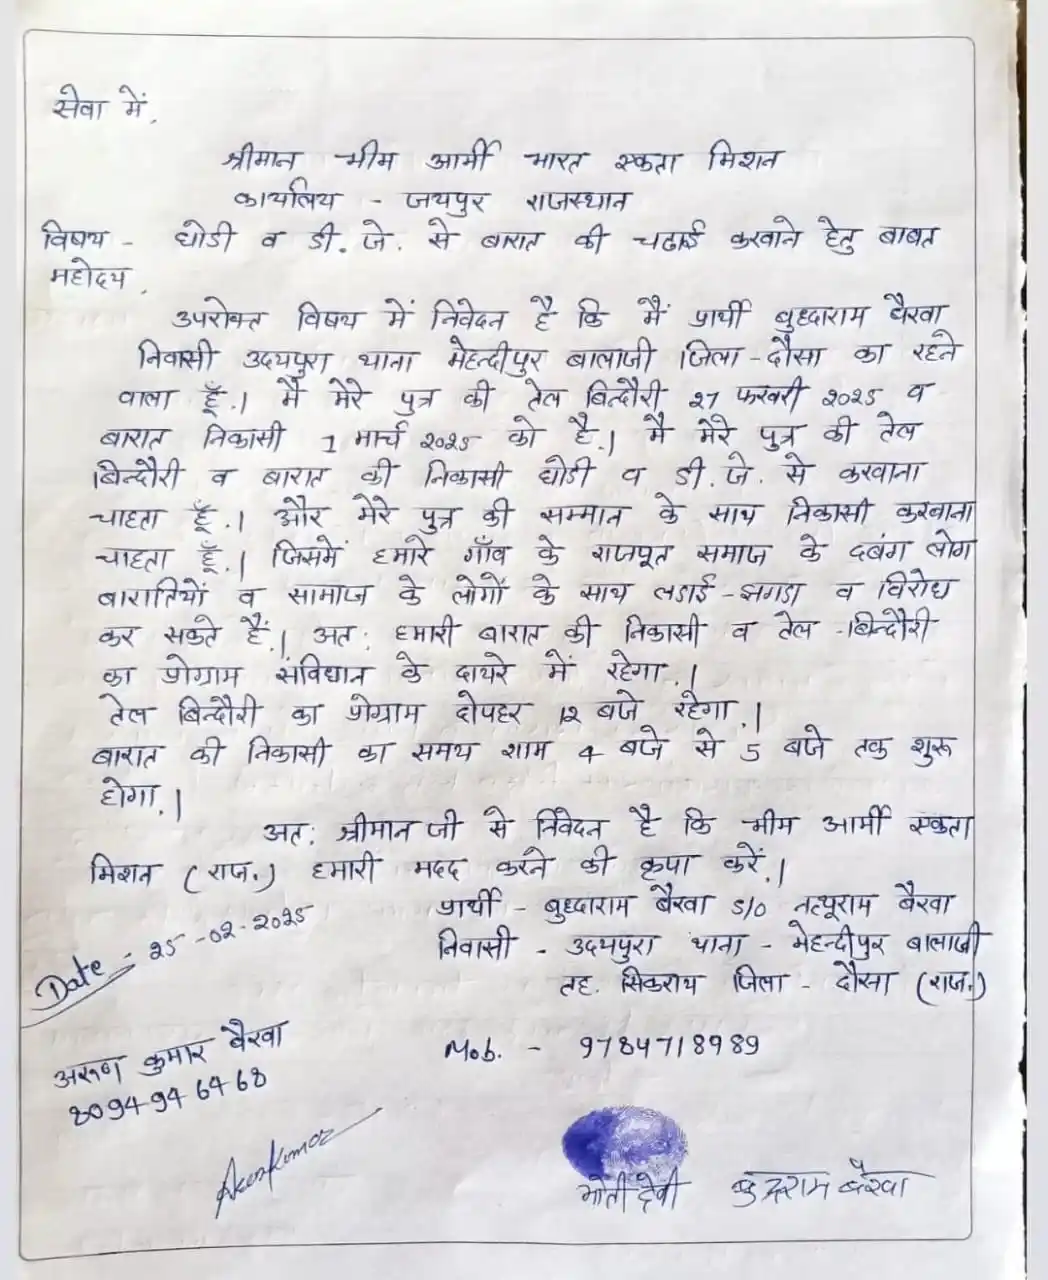 सेवा में,
श्रीमान भीम आर्मी भारत एकता मिशन
कार्यालय - जयपुर राजस्थान
विषय - घोडी व डी. जे. से बारात की चढाई करवाने हेतु बाबत
महोदय,
उपरोक्त विषय में निवेदन है कि मैं प्रार्थी बुध्दाराम बैरवा
निवासी उदयपुरा थाना मेहन्दीपुर बालाजी जिला - दौसा का रहने
वाला हूँ.। मै मेरे पुत्र की तेल बिन्दौरी 27 फरवरी 2025 व
बारात निकासी 1 मार्च 2025 को है.। मै मेरे पुत्र की तेल
बिन्दौरी व बारात की निकासी घोडी व डी. जे. से करवाना
चाहता हूँ.। और मेरे पुत्र की सम्मान के साथ निकासी करवाना
चाहता हूँ.। जिसमें हमारे गाँव के राजपूत समाज के दबंग लोग
बारातियों व सामाज के लोगों के साथ लडाई - झगडा व विरोध
कर सकते हैं.। अत: हमारी बारात की निकासी व तेल - बिन्दौरी
का प्रोग्राम संविधान के दायरे में रहेगा.।
तेल बिन्दौरी का प्रोग्राम दोपहर 12 बजे रहेगा.।
बारात की निकासी का समय शाम 4 बजे से 5 बजे तक शुरू
होगा.।
अत: श्रीमान जी से निवेदन है कि भीम आर्मी एकता
मिशन (राज.) हमारी मदद करने की कृपा करें.।
प्रार्थी - बुध्दाराम बैरवा S/O नत्थूराम बैरवा
निवासी - उदयपुरा थाना - मेहन्दीपुर बालाजी
तह. सिकराय जिला - दौसा (राज.)
Date - 25-02-2025
Mob. - 9784718989
अरुण कुमार बैरवा
8094946468
Arunkumar
भोती देवी बुद्धाराम बैरवा